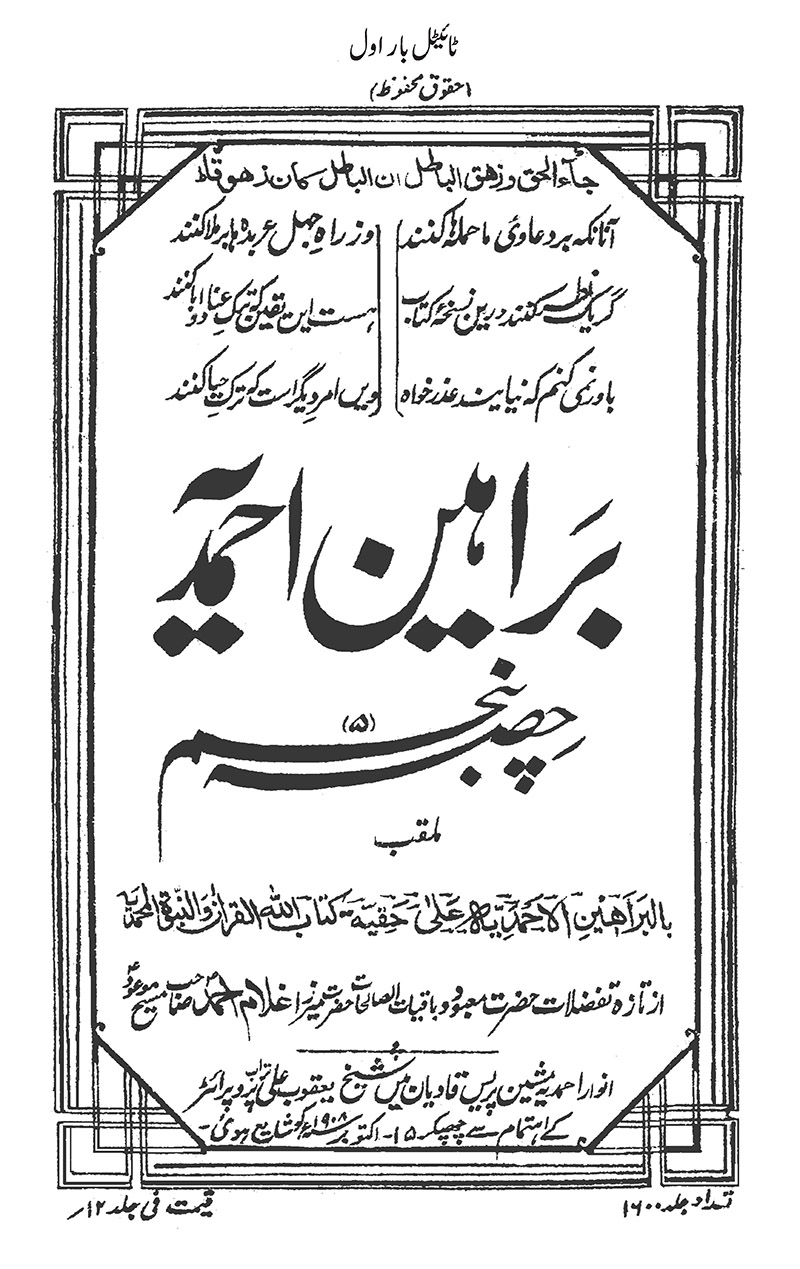 ٹائیٹل بار اول
(حقوق محفوظ)
جآء الحق و زهق الباطل ان الباطل كان زهوقا
آنانکہ بر دعاوئ ما حملہ ہا کنند وز راہِ جہل عربدہ ہا برملا کنند
گر یک نظر کنند درین نسخۂ کتاب ہست این یقین کہ ترکِ عناد و ابا کنند
باور نمی کنم کہ نیایند عذر خواہ ویں امرِ دیگر است کہ ترکِ حیا کنند
براہین احمدیہ
حصہ پنجم
(۵)
ملقب
بالبراهین الاحمدیه علی حقیة کتاب الله القرآن والنبوة المحمدیه
از تازہ تفضلات حضرت معبود و باقیات الصالحات حضرت میرزا غلام احمد صاحب مسیح موعودؑ
انوار احمدیہ مشین پریس قادیان میں شیخ یعقوب علی تراب پروپرائٹر
کے اہتمام سے چھپکر ۱۵۔ اکتوبر ۱۹۰۸ء کو شایع ہوئی۔
تعداد جلد ۱۶۰۰
قیمت فی جلد ۱۲؍